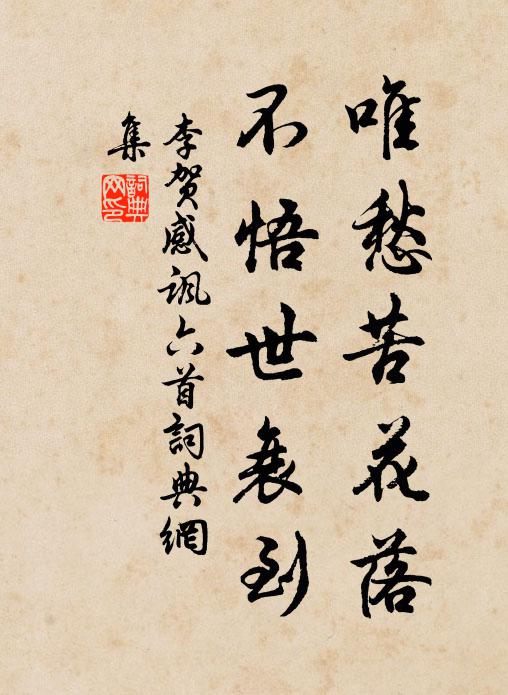 唯愁苦花落
不悟世衰到
李贺感讽六首詞典網
集
詞典
网印